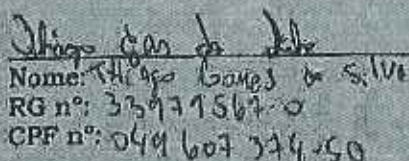 Thiago Gomes da Silva
Nome: Thiago Gomes da Silva
RG nº: 33979567-0
CPF nº: 049 607 374-50